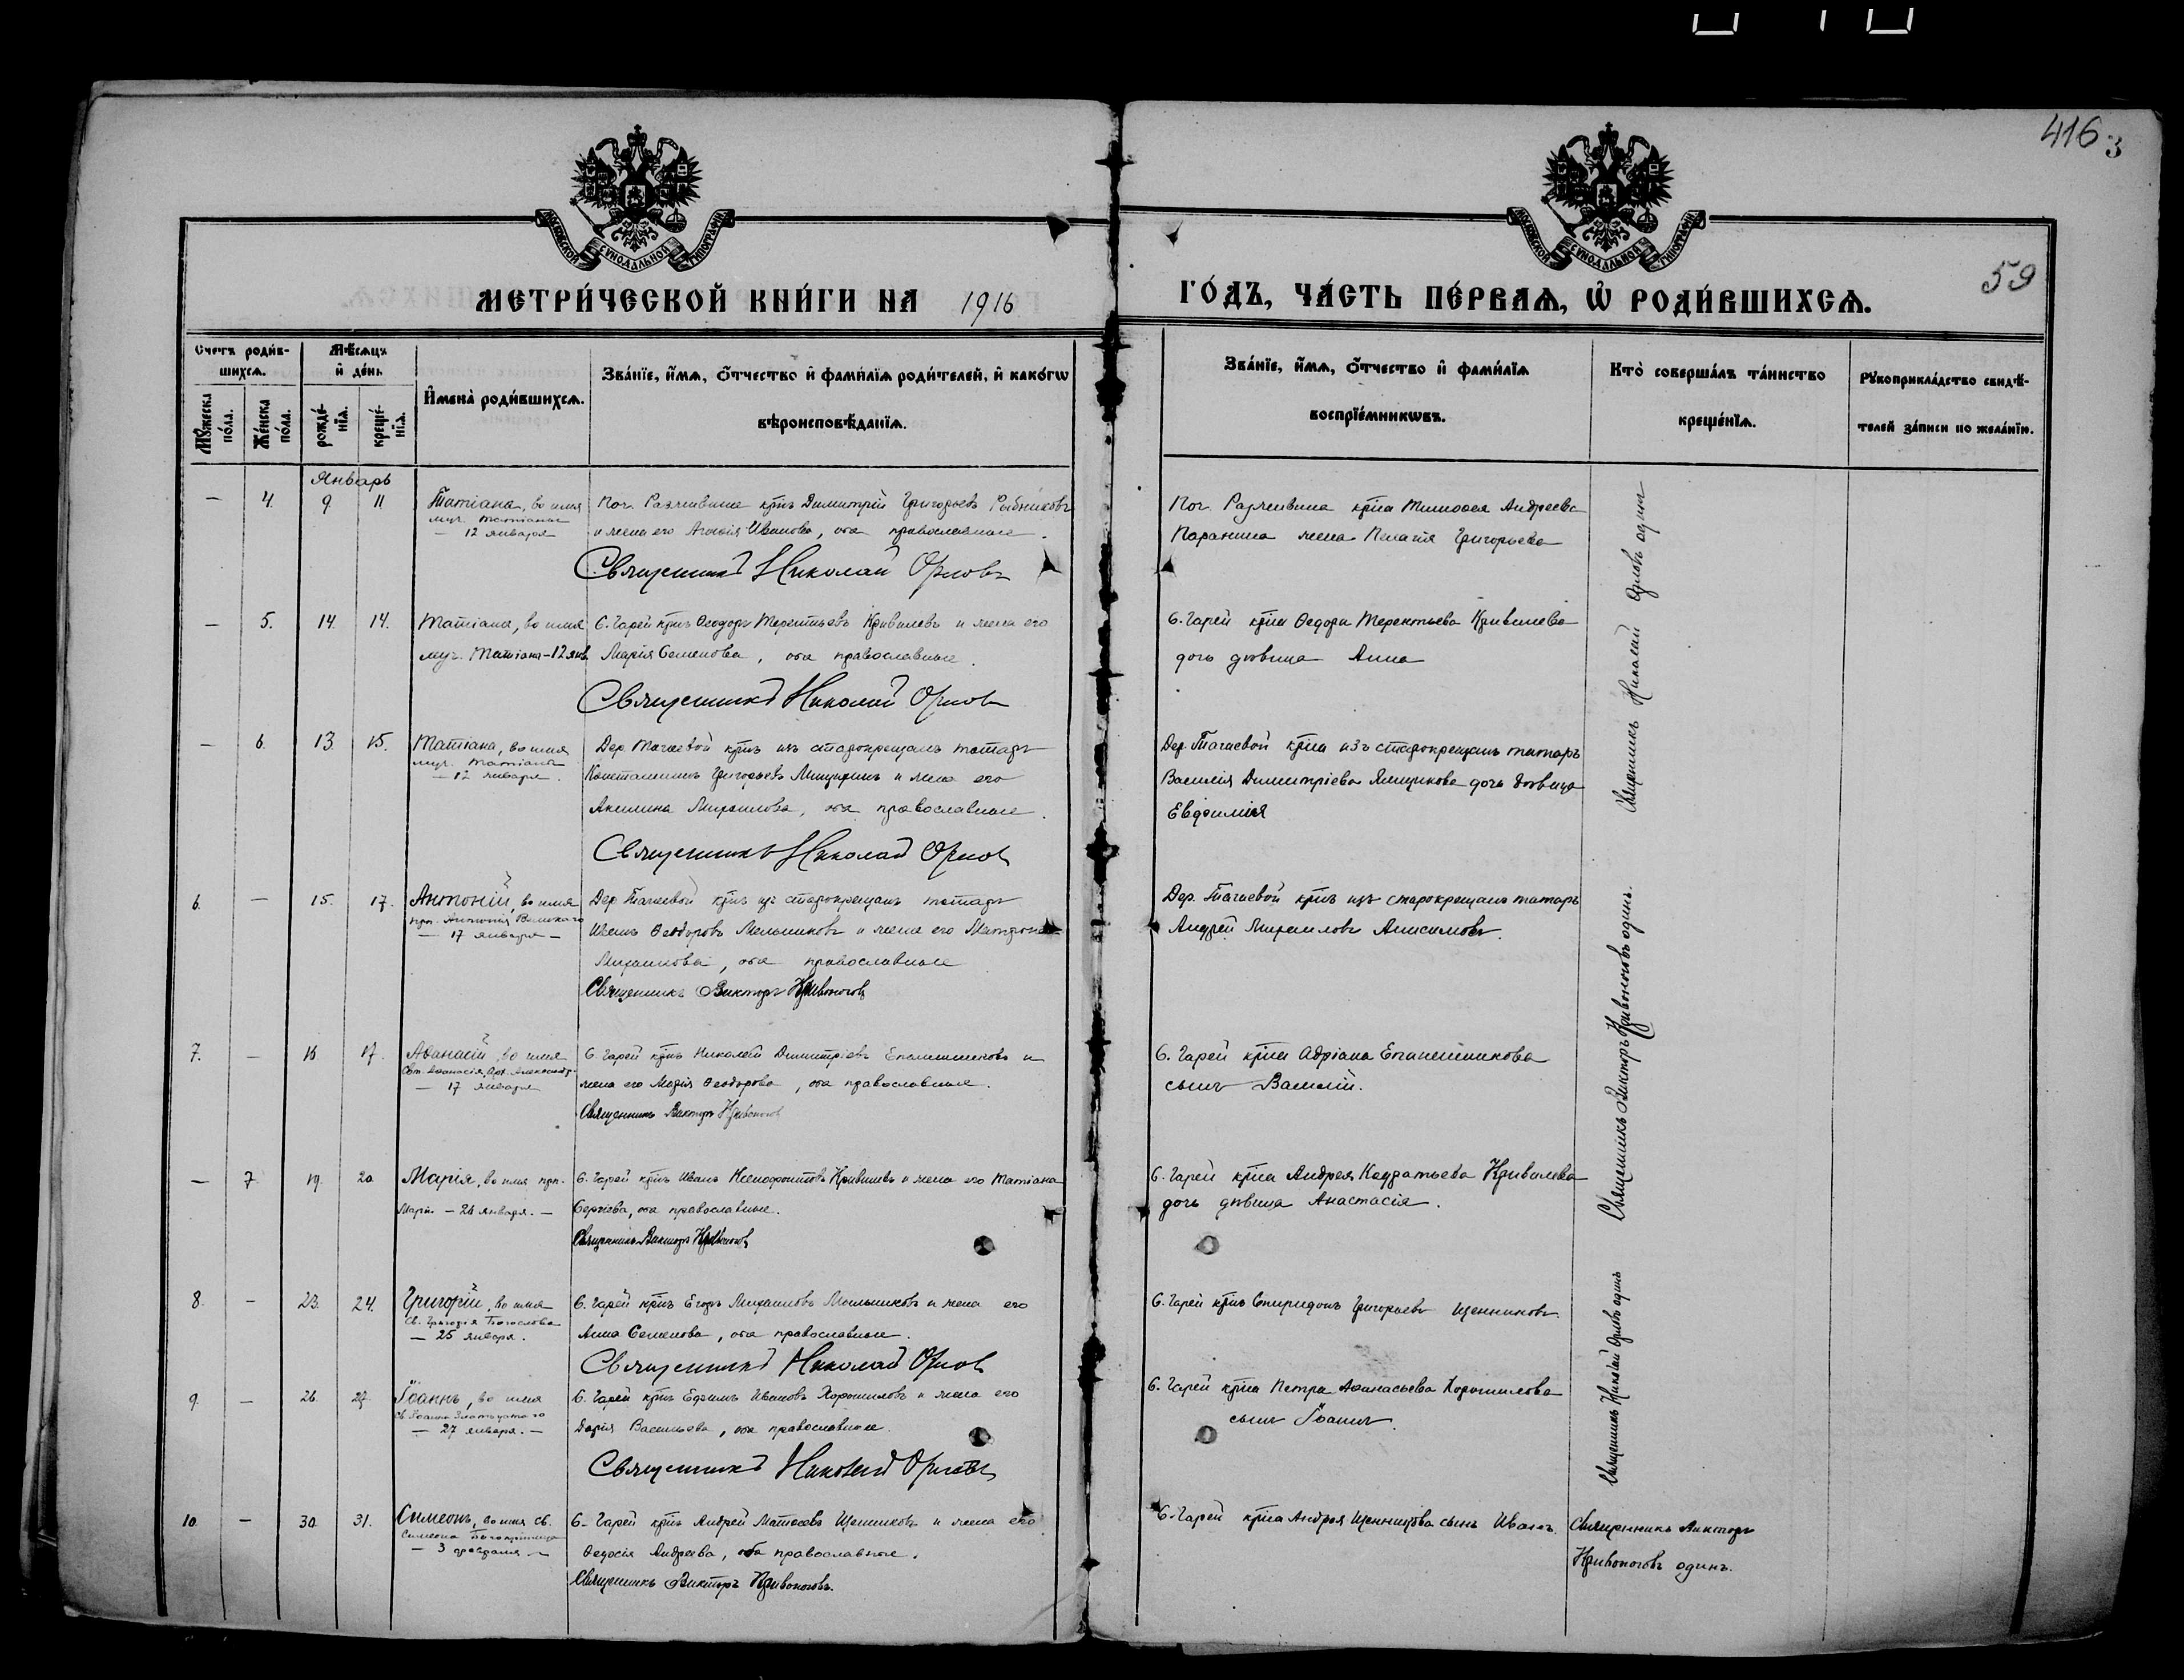 416 3
59
МОСКОВСКОЙ СѴНОДАЛЬНОЙ ТИПОГРАФІИ
МОСКОВСКОЙ СѴНОДАЛЬНОЙ ТИПОГРАФІИ
МЕТРИ́ЧЕСКОЙ КНИ́ГИ НА 1916
ГО́ДЪ, ЧА́СТЬ ПЕ́РВАѦ, Ѡ҆ РОДИ́ВШИХСѦ.
Счетъ роди́в-
шихсѧ.
Мѣ́сѧцъ
и҆ де́нь
И҆мена̀ роди́вшихсѧ.
Зва́нїе, и҆́мѧ, ѻ҆́тчество и҆ фами́лїѧ роди́телей, и҆ како́гѡ
вѣроисповѣ́данїѧ.
Мꙋ́жеска
по́ла.
Же́нска
по́ла.
рожде́-
нїѧ.
креще́-
нїѧ.
Зва́нїе, и҆́мѧ, ѻ҆́тчество и҆ фами́лїѧ
воспрїе́мникѡвъ.
Кто̀ соверша́лъ та́инство
креще́нїѧ.
Рꙋкоприкла́дство свидѣ́-
телей за́писи по жела́нїю.
Январь
— 4. 9. 11
Татіана, во имя
муч. Татіаны
— 12 января
Поч. крнъ Димитрій Григорьевъ Рыбниковъ
и жена его Агафія Иванова, оба православные.
Священникъ Николай Орловъ
Поч. крна Тимофея Андреева
жена Пелагія Григорьева
— 5. 14. 14.
Татіана, во имя
муч. Татіаны - 12 янв.
С. Чарей крнъ Ѳеодоръ Терентьевъ Кривилевъ и жена его
Марія Семенова, оба православные.
Священникъ Николай Орловъ
С. Чарей крна Ѳедора Терентьева Кривилева
дочь дѣвица Анна
Священникъ Николай Орловъ один
— 6. 13. 15.
Татіана, во имя
муч. Татіаны
— 12 января.
Дер. Тачаевой крнъ изъ старокрещанъ татаръ
Константинъ Григорьевъ и жена его
Акилина Михаилова, оба православные.
Священникъ Николай Орловъ
Дер. Тачаевой крна изъ старокрещанъ татаръ
Василія Димитріева Ямщикова дочь дѣвица
Евфимія
6. — 15. 17.
Антоній, во имя
прп. Антонія Великаго
— 17 января —
Дер. Тачаевой крнъ изъ старокрещанъ татаръ
Иванъ Ѳеодоровъ Мельниковъ и жена его Матрона
Михаилова, оба православные
Священникъ Викторъ Кривоноговъ
Дер. Тачаевой крнъ изъ старокрещанъ татаръ
Андрей Михаиловъ Анисимовъ.
7. — 16 17.
Аѳанасій, во имя
Свт. Аѳанасія, Арх. Александр.
— 17 января
С. Чарей крнъ Николай Димитріевъ Епанешниковъ и
жена его Марія Ѳеодорова, оба православные.
Священникъ Викторъ Кривоноговъ
С. Чарей крна Адріана Епанешникова
сынъ Василій.
Священникъ Викторъ Кривоноговъ одинъ.
— 7 19. 20
Марія, во имя прп.
Маріи — 26 января. —
С. Чарей крнъ Иванъ Ксенофонтовъ Кривилевъ и жена его Татіана
Сергіева, оба православные.
Священникъ Викторъ Кривоноговъ
С. Чарей крна Андрея Кодратьева Кривилева
дочь дѣвица Анастасія.
8. — 23. 24.
Григорій, во имя
Св. Григорія Богослова
— 25 января.
С. Чарей крнъ Егоръ Михаиловъ Мельниковъ и жена его
Анна Семенова, оба православные.
Священникъ Николай Орловъ
С. Чарей крнъ Спиридонъ Григорьевъ Щенниковъ.
Священникъ Николай Орловъ одинъ
9. — 26. 27.
Іоаннъ, во имя
Св. Іоанна Златоустаго
— 27 января. —
С. Чарей крнъ Ефимъ Ивановъ Хорошиловъ и жена его
Дарія Васильева, оба православные.
Священникъ Николай Орловъ
С. Чарей крна Петра Аѳанасьева Хорошилова
сынъ Іоаннъ.
10 — 30. 31.
Симеонъ, во имя св.
Симеона Богопріимца
— 3 февраля —
С. Чарей крнъ Андрей Матѳеевъ Щенниковъ и жена его
Ѳеодосія Андреева, оба православные.
Священникъ Викторъ Кривоноговъ.
С. Чарей крна Андрея Щенникова сынъ Иванъ.
Священникъ Викторъ
Кривоноговъ одинъ.